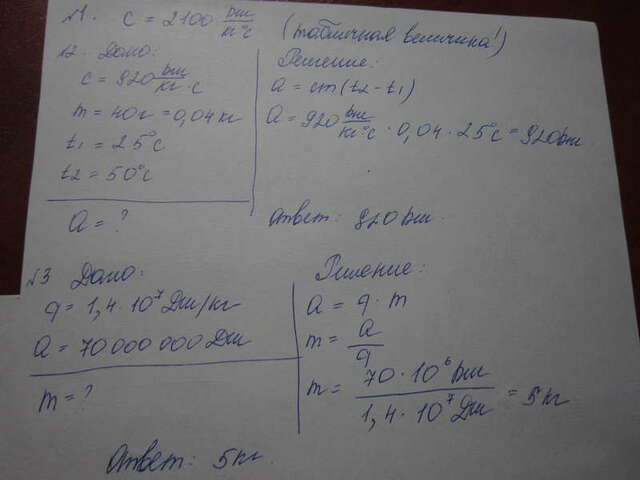 №1. c = 2100 Дж/кг°С (табличная величина!)
№2. Дано:
c = 920 Дж/кг·°С
m = 40г = 0,04 кг
t₁ = 25°С
t₂ = 50°С
Q = ?
Решение:
Q = cm(t₂ - t₁)
Q = 920 Дж/кг°С · 0,04 · 25°С = 920 Дж
Ответ: 920 Дж.
№3 Дано:
q = 1,4 · 10⁷ Дж/кг
Q = 70 000 000 Дж
m = ?
Решение:
Q = q · m
m = Q/q
m = 70 · 10⁶ Дж / 1,4 · 10⁷ Дж = 5 кг
Ответ: 5 кг.